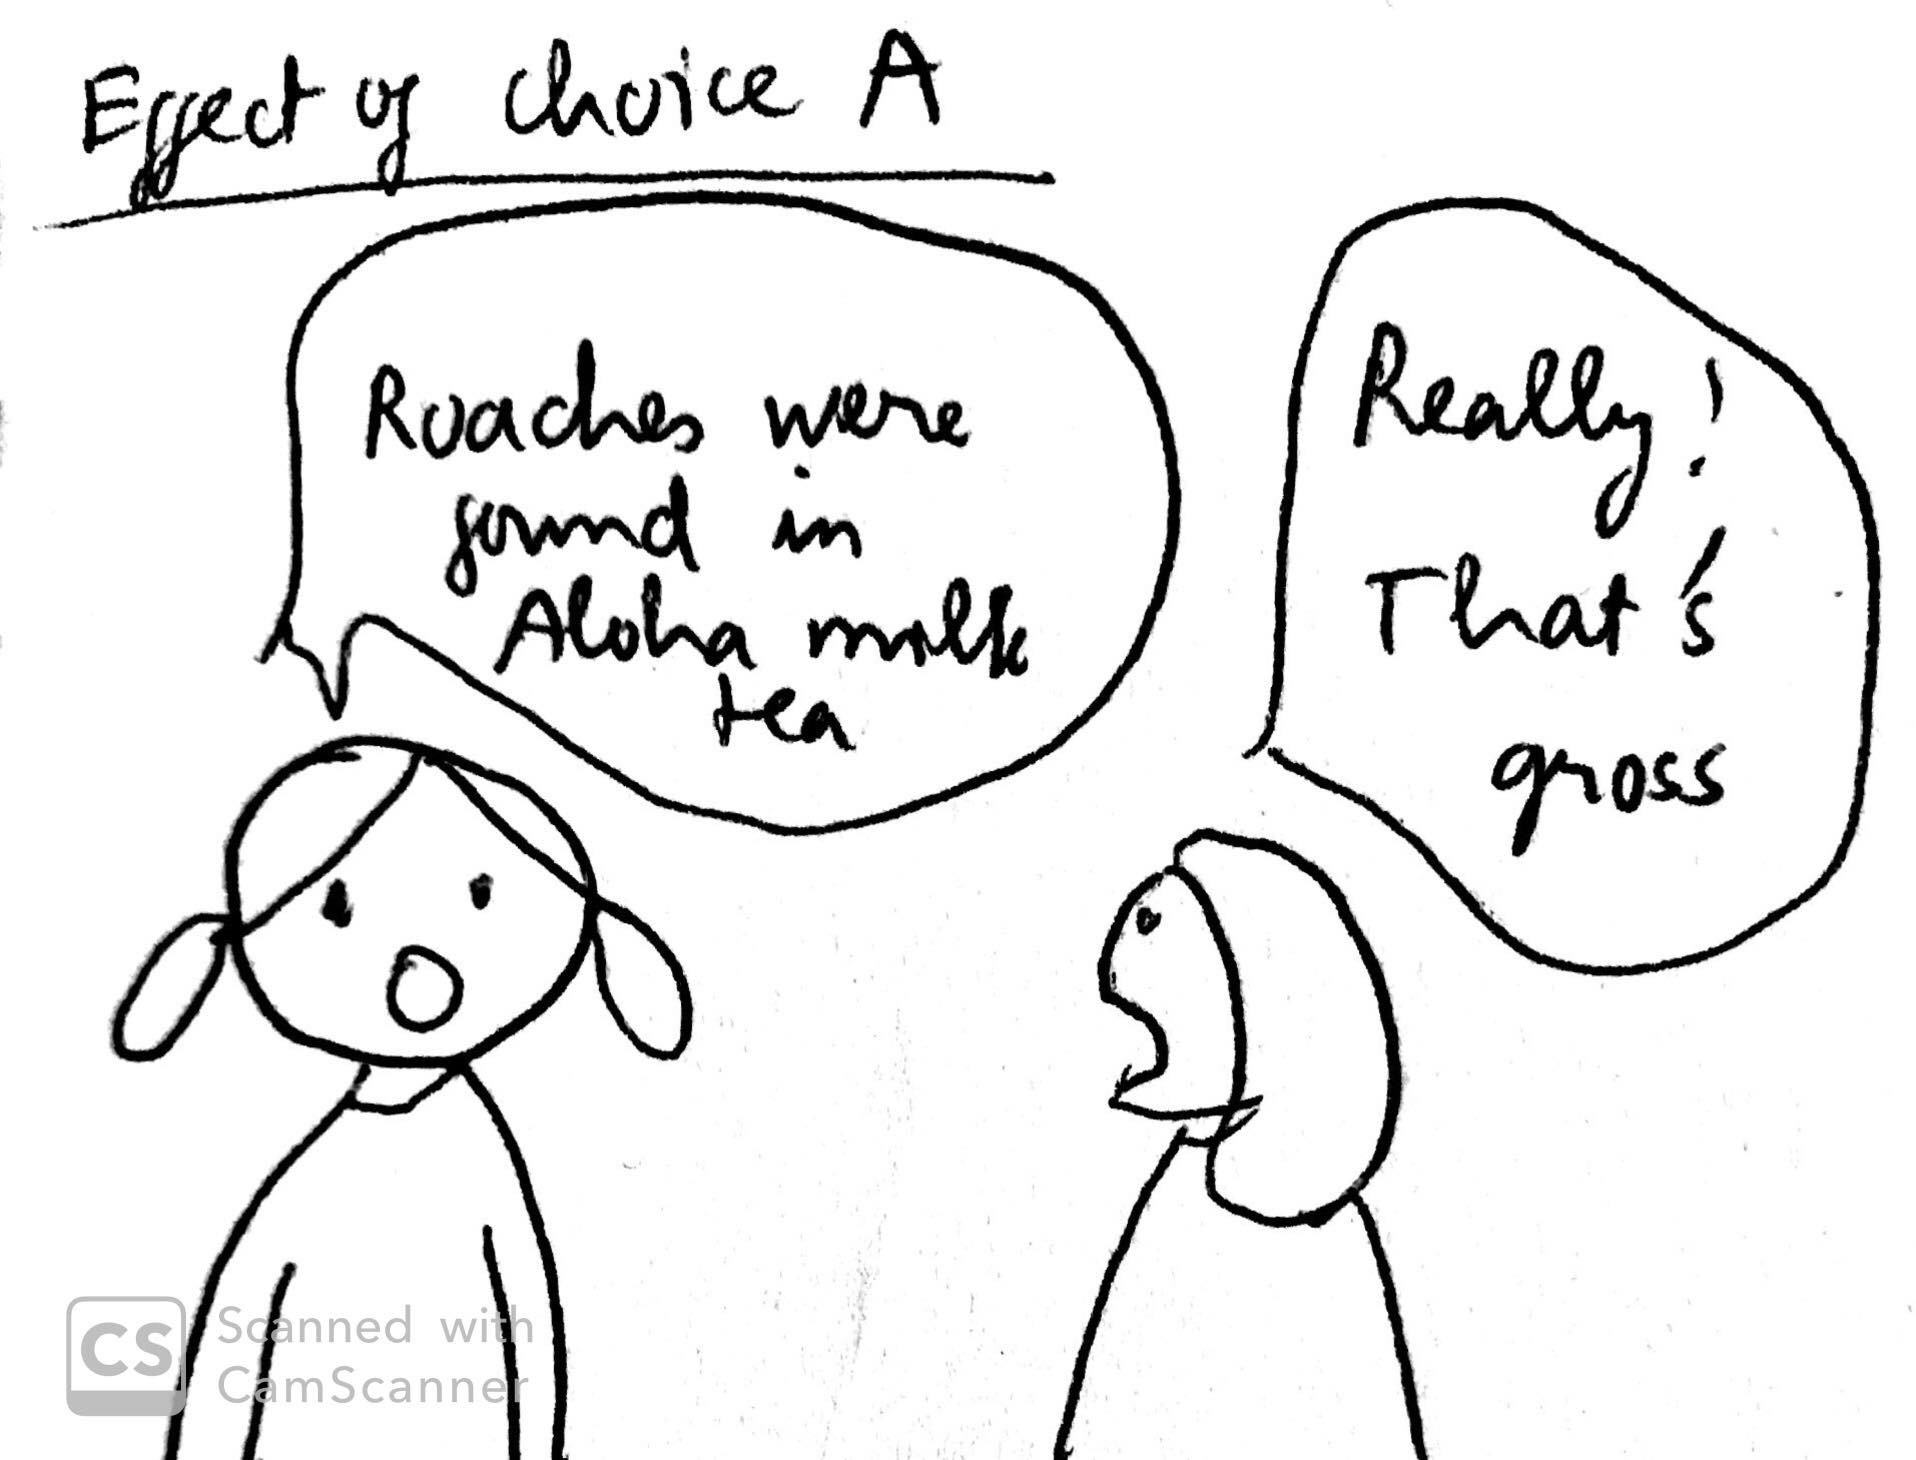 Effect of choice A
Roaches were
found in
Aloha milk
tea
Really!
That's
gross
CS
Scanned with
CamScanner